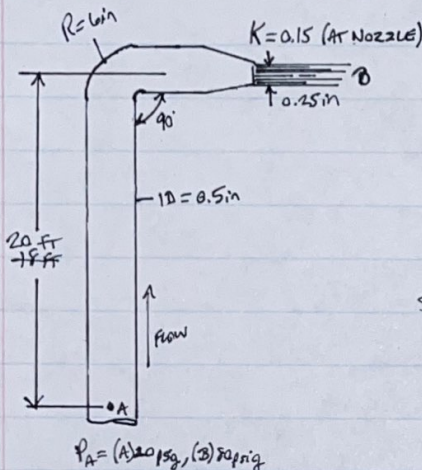 R=6in
K=0.15 (AT NOZZLE)
B
0.25in
90°
ID=0.5in
20 FT
18 FT
FLOW
A
PA=(A)20psg, (B)80psig